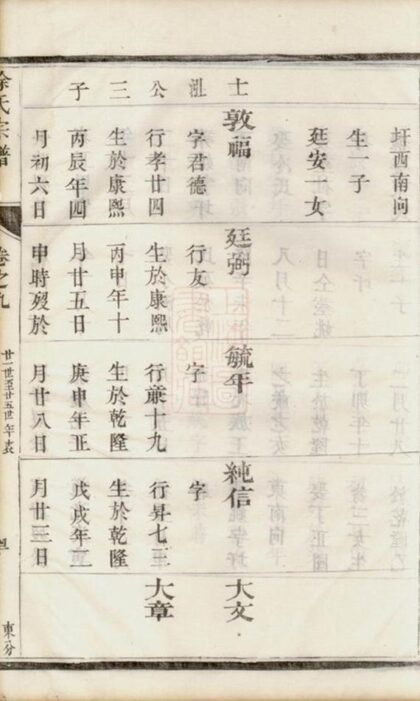 圩西南向
生一子
廷安一女
士 公三子
敦福
字君德
行孝廿四
生於康熙
丙辰年四
月初六日
廷弼
行友
生於康熙
丙申年十
月廿五日
申時歿於
毓年
字
行 十九
生於乾隆
庚申年正
月廿八日
純信
字
行昇七三
生於乾隆
戊戌年二
月廿三日
大文
大章
徐氏宗譜
卷之九
廿一世至廿五世年表
東分